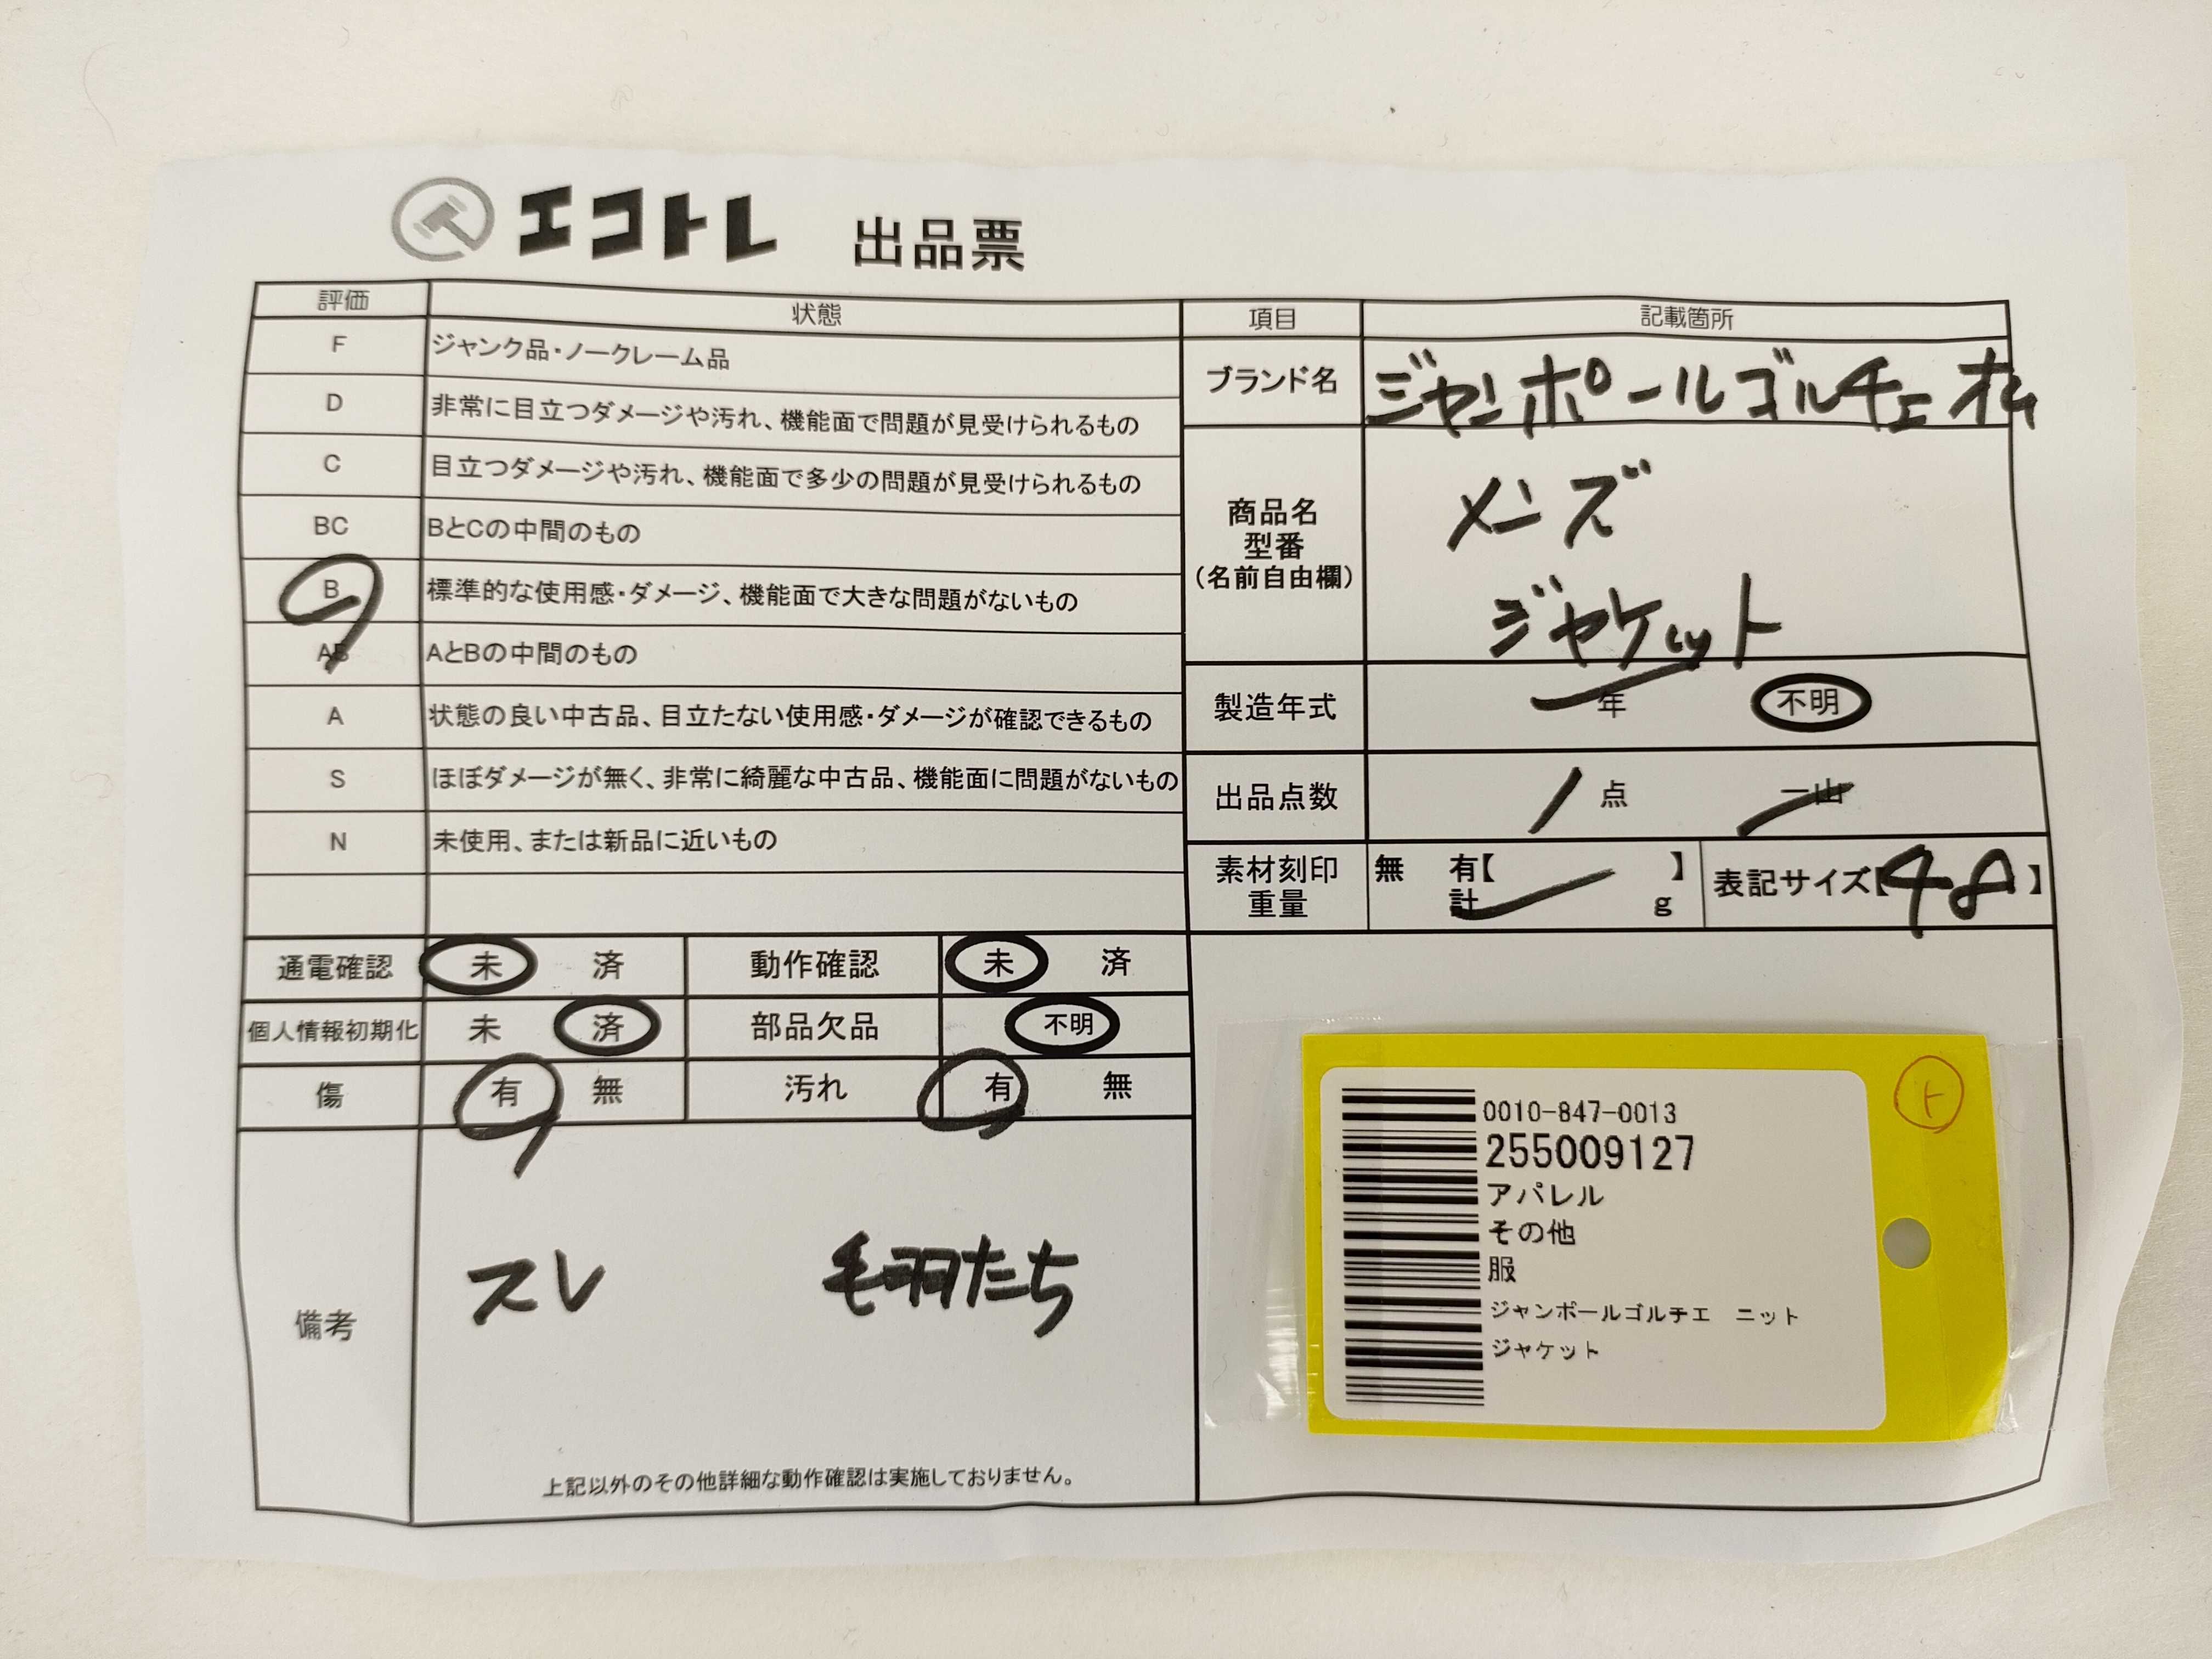 エコトレ 出品票
評価 状態
F ジャンク品・ノークレーム品
D 非常に目立つダメージや汚れ、機能面で問題が見受けられるもの
C 目立つダメージや汚れ、機能面で多少の問題が見受けられるもの
BC BとCの中間のもの
B 標準的な使用感・ダメージ、機能面で大きな問題がないもの
AB AとBの中間のもの
A 状態の良い中古品、目立たない使用感・ダメージが確認できるもの
S ほぼダメージが無く、非常に綺麗な中古品、機能面に問題がないもの
N 未使用、または新品に近いもの
項目 記載箇所
ブランド名 ジャンポールゴルチェオム
商品名
型番
（名前自由欄）
メンズ
ジャケット
製造年式 年 不明
出品点数 1 点 一山
素材刻印 無 有【 】
重量 計 g
表記サイズ【48】
通電確認 未 済 動作確認 未 済
個人情報初期化 未 済 部品欠品 不明
傷 有 無 汚れ 有 無
備考
スレ 毛羽たち
上記以外のその他詳細な動作確認は実施しておりません。
ト
0010-847-0013
255009127
アパレル
その他
服
ジャンポールゴルチエ ニット
ジャケット